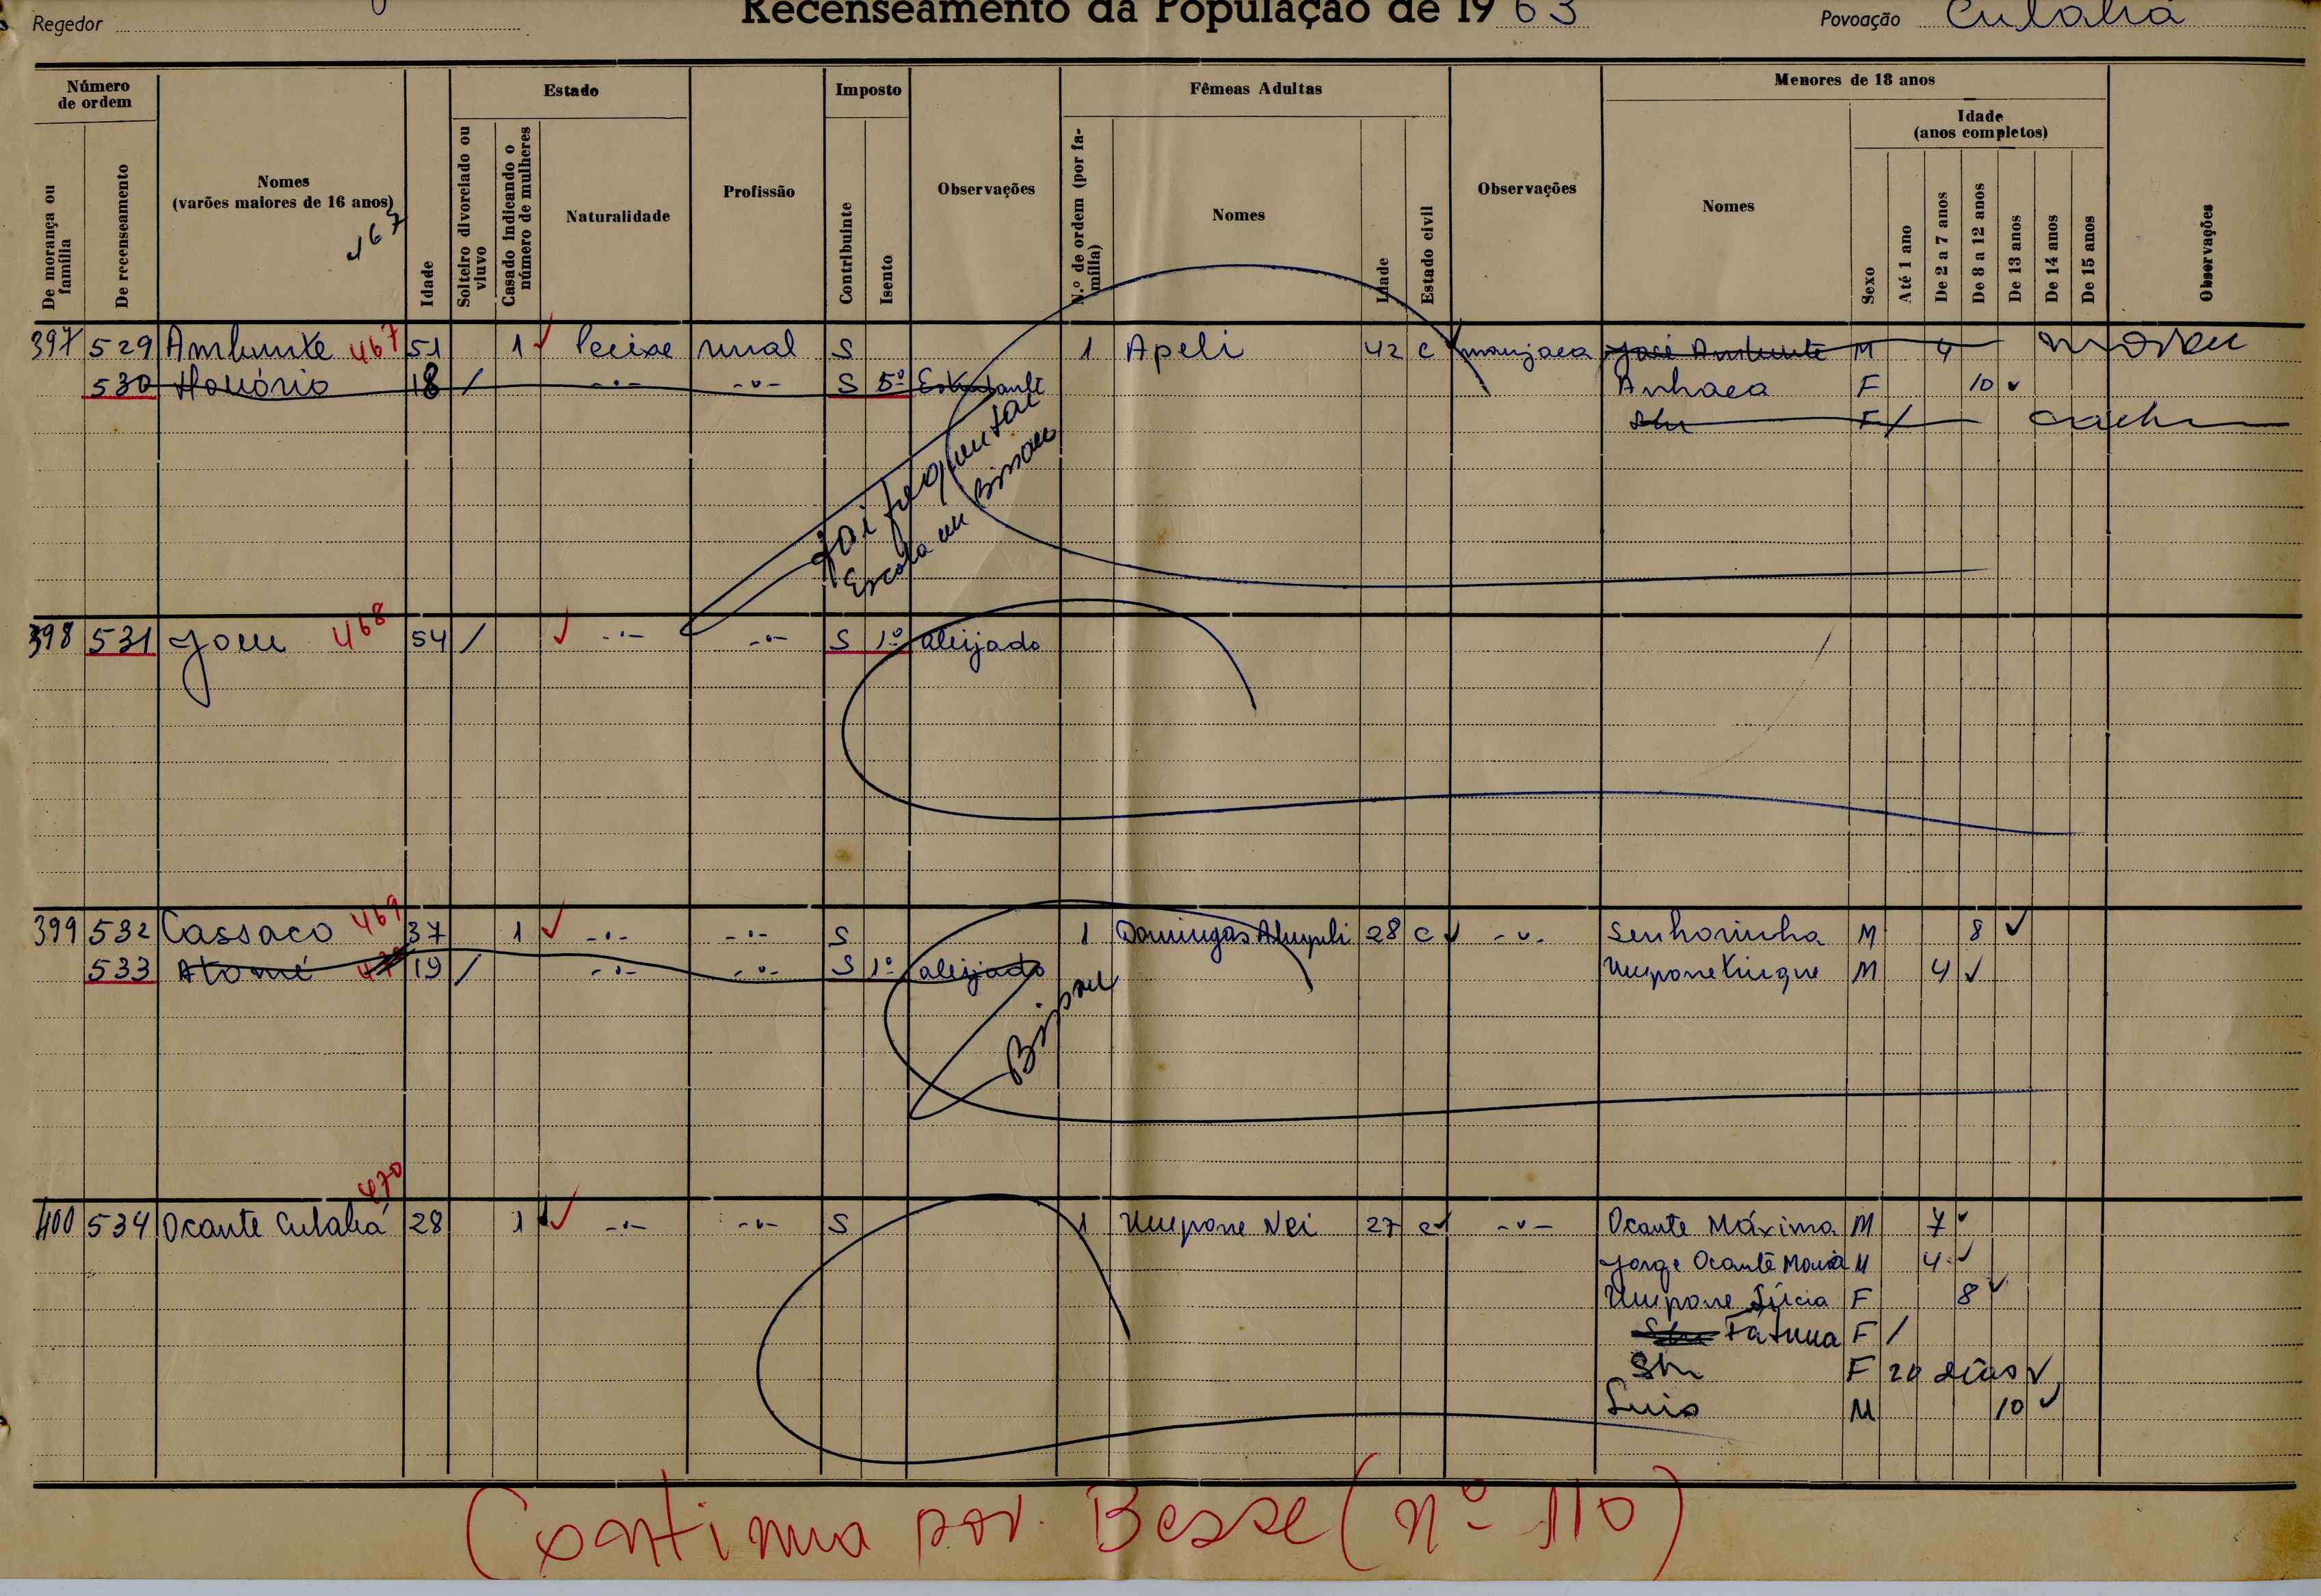 Regedor
Recenseamento da População de 1963
Povoação Culahá
Número de ordem
De morança ou família
De recenseamento
Nomes (varões maiores de 16 anos)
Idade
Estado
Solteiro divorciado ou viuvo
Casado indicando o número de mulheres
Naturalidade
Profissão
Imposto
Contribuinte
Isento
Observações
Fêmeas Adultas
N.º de ordem (por família)
Nomes
Idade
Estado civil
Observações
Menores de 18 anos
Nomes
Sexo
Idade (anos completos)
Até 1 ano
De 2 a 7 anos
De 8 a 12 anos
De 13 anos
De 14 anos
De 15 anos
Observações
397 529 Ambunte 467 51 1 Pecixe rural S 1 Apeli 42 C manjaca José Ambunte M 4
530 Honório 18 / -·- -·- S 5º Estudante Anhaca F 10
Shu F /
Foi frequentar
Escola em Bissau
398 531 468 54 / -·- -·- S 1º aleijado
399 532 Cassaco 469 37 1 -·- -·- S 1 Domingas 28 C -·- Senhorinha M 8
533 Atomé 19 / -·- -·- S 1º aleijado M 4
Bissau
470
400 534 Ocante Culahá 28 1 -·- -·- S 1 Umpone Nei 27 C -·- Ocante Máxima M 7
Jorge Ocante M 4
Umpone Lúcia F 8
Fátima F /
F dias
Luis M 10
Continua pov. Besse (nº 110)